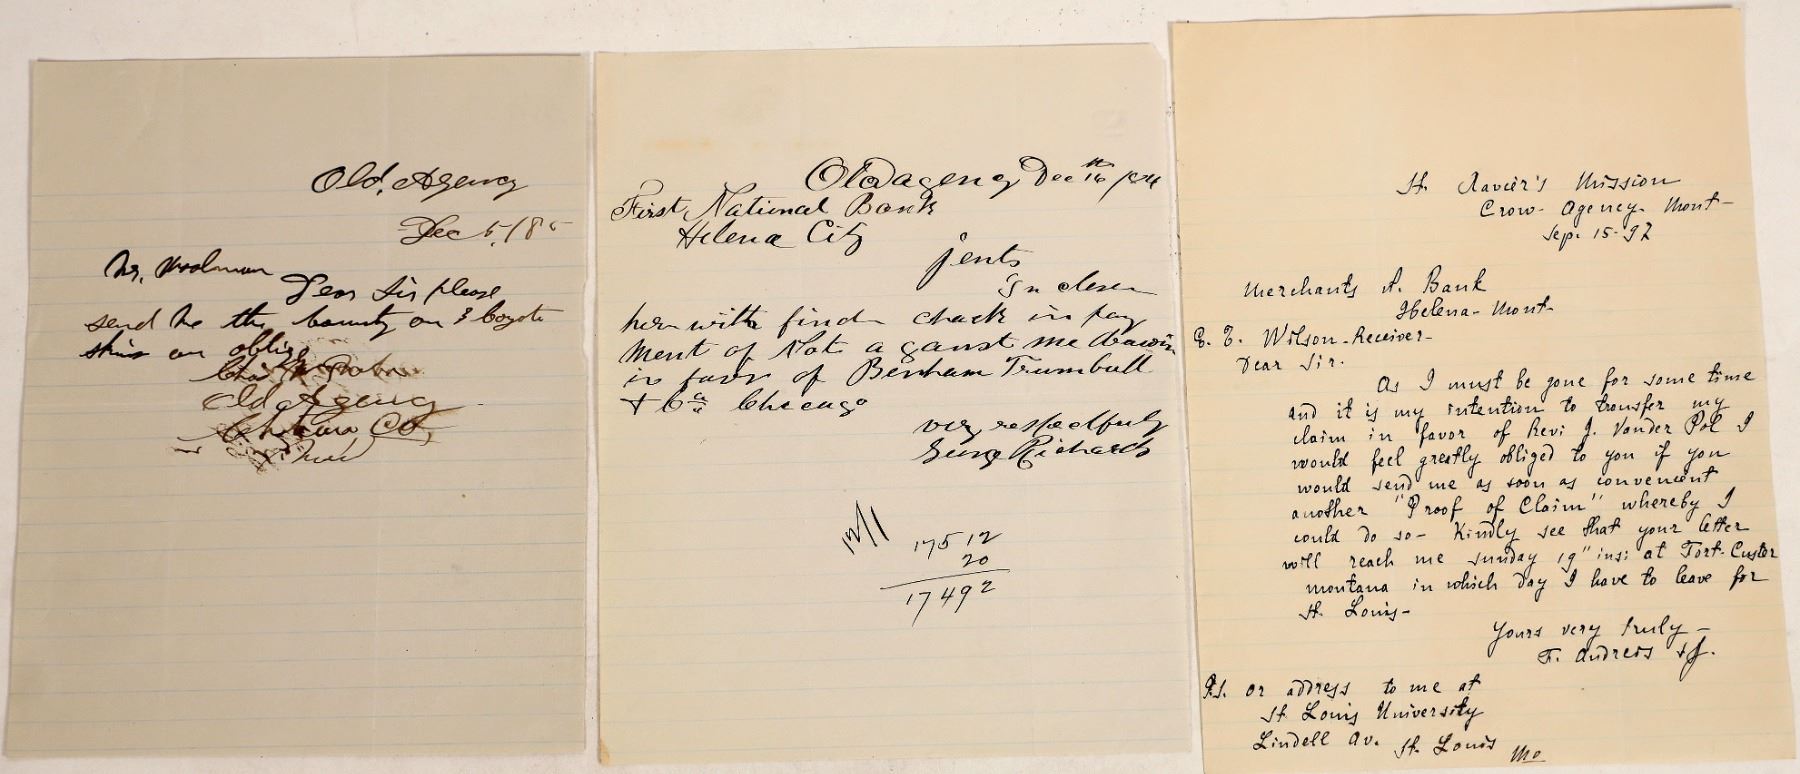 Old. Agency
Dec 5, / 85
Mr. Woolman
Dear Sir please
send me the bounty on 3 Coyote
skins an oblige
Chas
Old Agency
Co,
Old agency Dec 16th /
First National Bank
Helena City
jents
In closen
here with find check in pay
ment of Not aganst me drawin
in favor of Benham Trumbull
+ Co Chicago
very respectfuly
Richards
175 12
20
174 92
St. Xavier's Mission
Crow- Agency- Mont-
Sep. 15-97
Merchants N. Bank
Helena- Mont-
E. E. Wilson-Receiver-
Dear Sir.
As I must be gone for some time
and it is my intention to transfer my
claim in favor of Rev: J. Vander Pol I
would feel greatly obliged to you if you
would send me as soon as convenient
another "Proof of Claim" whereby I
could do so- Kindly see that your letter
will reach me sunday 19" ins: at Fort-Custer
montana in which day I have to leave for
St. Louis-
Yours very truly-
F. Andreis SJ.
P.S. or address to me at
St Louis University
Lindell Av. St. Louis Mo